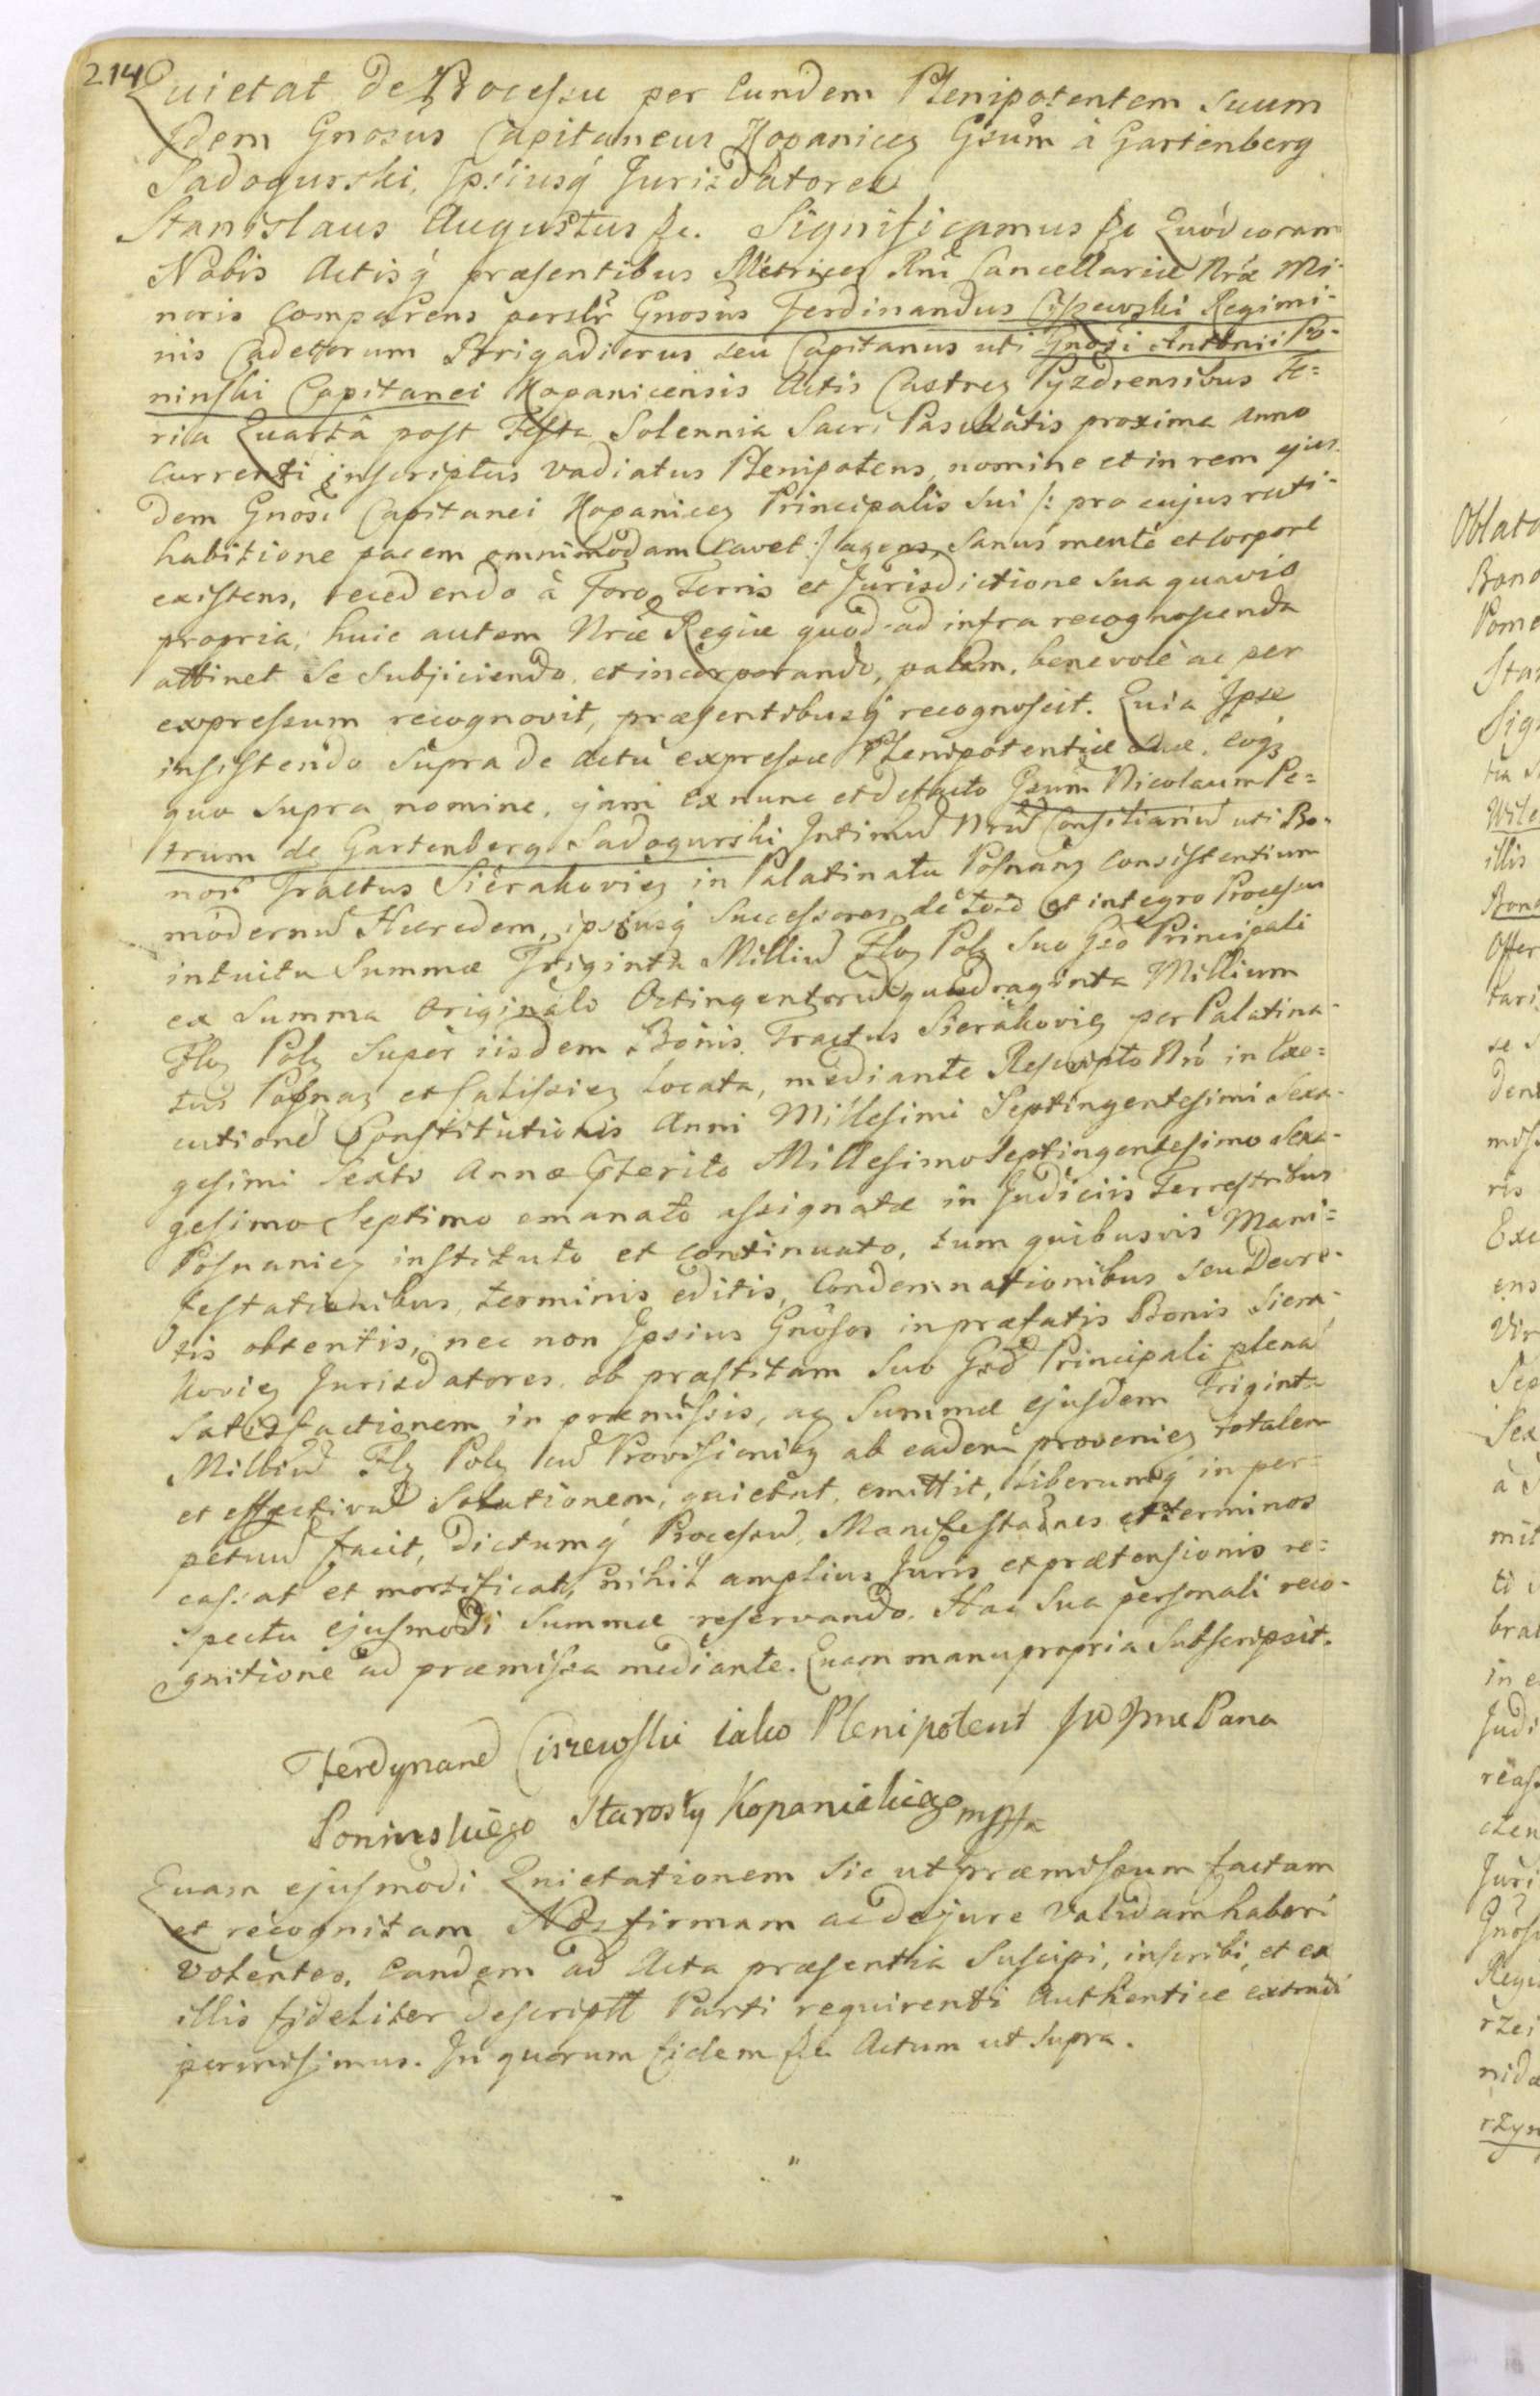 214
Quietat de Processu per eundem Plenipotentem suum
Idem Gnosus Capitaneus Kopanicen Gsum à Gartenberg
Sadogurski, Ipsiusq Jurisdatores
Stanislaus Augustus &c. Significamus &c Quód coram
Nobis Actisq præsentibus Metrices Rni Cancellariæ Nræ Mi-
noris comparens perslr Gnosus Ferdinandus Ciszewski Regimi-
nis Cadetorum Brigadierus seu Capitanus uti Gnosi Antonii Po-
ninski Capitanei Kopanicensis Actis Castren Pyzdrensibus Fe=
ria Quarta post Festa Solennia Sacri Paschatis proxime Anno
currenti inscriptus vadiatus Plenipotens, nomine et in rem ejus-
dem Gnosi Capitanei Kopanicen Principalis sui /: pro cujus rati-
habitione pacem omnimodam cavet :/ agens, Sanus mente et corpore
existens, recedendo à Foro Terris et Jurisdictione sua quavis
propria, huic autem Nræ Regiæ quód ad infra recognoscenda
attinet se subjiciendo, et incorporando, palam, benevolè ac per
expressum recognovit, præsentibusq recognoscit. Quia Ipse
insistendo supra de actu expressæ Plenipotentiæ suæ, eoq
quo supra nomine, jam ex nunc et de facto Gsum Nicolaum Pe=
trum de Gartenberg Sadogurski Intimum Nrum Consiliarium uti Bo-
nor Tractus Sierakovien in Palatinatu Posnan consistentium
modernum Hæredem, ipsiusq Successores, de toto et integro Processu
intuitu Summæ Triginta Millium Flor Pol Suo Gso Principali
ex Summa originali Octingentorum quadraginta Millium
Flor Pol Super iisdem Bonis Tractus Sierakovien per Palatina-
tus Posnan et Calissien locata, mediante Rescripto Nro in Exe=
cutionem Constitutionis Anni Millesimi Septingentesimi Sexa-
gesimi Sexti Anno præterito Millesimo Septingentesimo Sexa-
gesimo Septimo emanato assignatæ in Judiciis Terrestribus
Posnanien instituto et continuato, tum quibusvis Mani=
festationibus, terminis editis, Condemnationibus seu Decre-
tis obtentis, nec non Ipsius Gnosos in præfatis Bonis Siera-
kovien Jurisdatores, ob præstitam Suo Gso Principali plenam
satisfactionem in præmissis, ac Summæ ejusdem Triginta
Millium Flr Pol cum Provisionibus ab eadem provenien totalem
et effectivam solutionem, quietat, emittit, liberumq in per-
petuum facit, dictumq Processum Manifestationes et terminos
cassat et mortificat, nihil amplius Juris et prætensionis re=
spectu ejusmodi Summæ reservando. Hac Sua personali reco-
gnitione ad præmissa mediante. Quam manu propria Subscripsit.
Ferdynand Ciszewski iako Plenipotent JW Jmc Pana
Poninskiego Starosty Kopanickiego mppa
Quam ejusmodi Quietationem sic ut præmissum factam
et recognitam Nos firmam ac de jure validam haberi
volentes, eandem ad Acta præsentia suscipi, inscribi, et ex
illis fideliter descriptt Parti requirenti authentice extradi
permisimus. In quorum fidem &c. Actum ut supra.